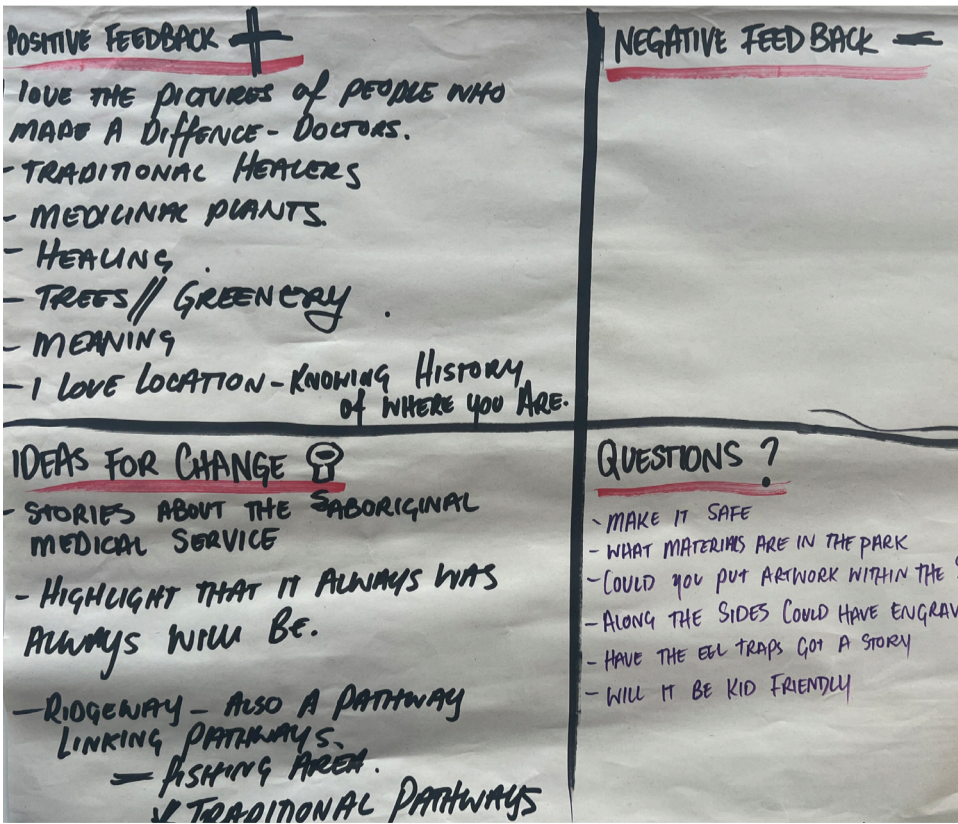 POSITIVE FEEDBACK +
love THE PICTURES of PEOPLE WHO
MADE A DIFFENCE - DOCTORS.
- TRADITIONAL HEALERS
- MEDICINAL PLANTS.
- HEALING.
- TREES // GREENERY.
- MEANING
- I LOVE LOCATION - KNOWING HISTORY
of WHERE YOU ARE.
NEGATIVE FEEDBACK -
IDEAS FOR CHANGE
- STORIES ABOUT THE ABORIGINAL
MEDICAL SERVICE
- HIGHLIGHT THAT IT ALWAYS WAS
ALWAYS WILL BE.
- RIDGEWAY - ALSO A PATHWAY
LINKING PATHWAYS.
FISHING AREA.
TRADITIONAL PATHWAYS
QUESTIONS ?
- MAKE IT SAFE
- WHAT MATERIALS ARE IN THE PARK
- COULD YOU PUT ARTWORK WITHIN THE
- ALONG THE SIDES COULD HAVE ENGRAV
- HAVE THE EEL TRAPS GOT A STORY
- WILL IT BE KID FRIENDLY